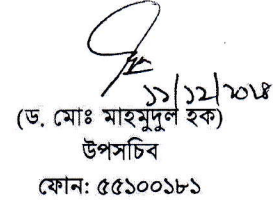 ১১/১২/২০১৪
(ড. মোঃ মাহমুদুল হক)
উপসচিব
ফোন: ৫৫১০০১৮১